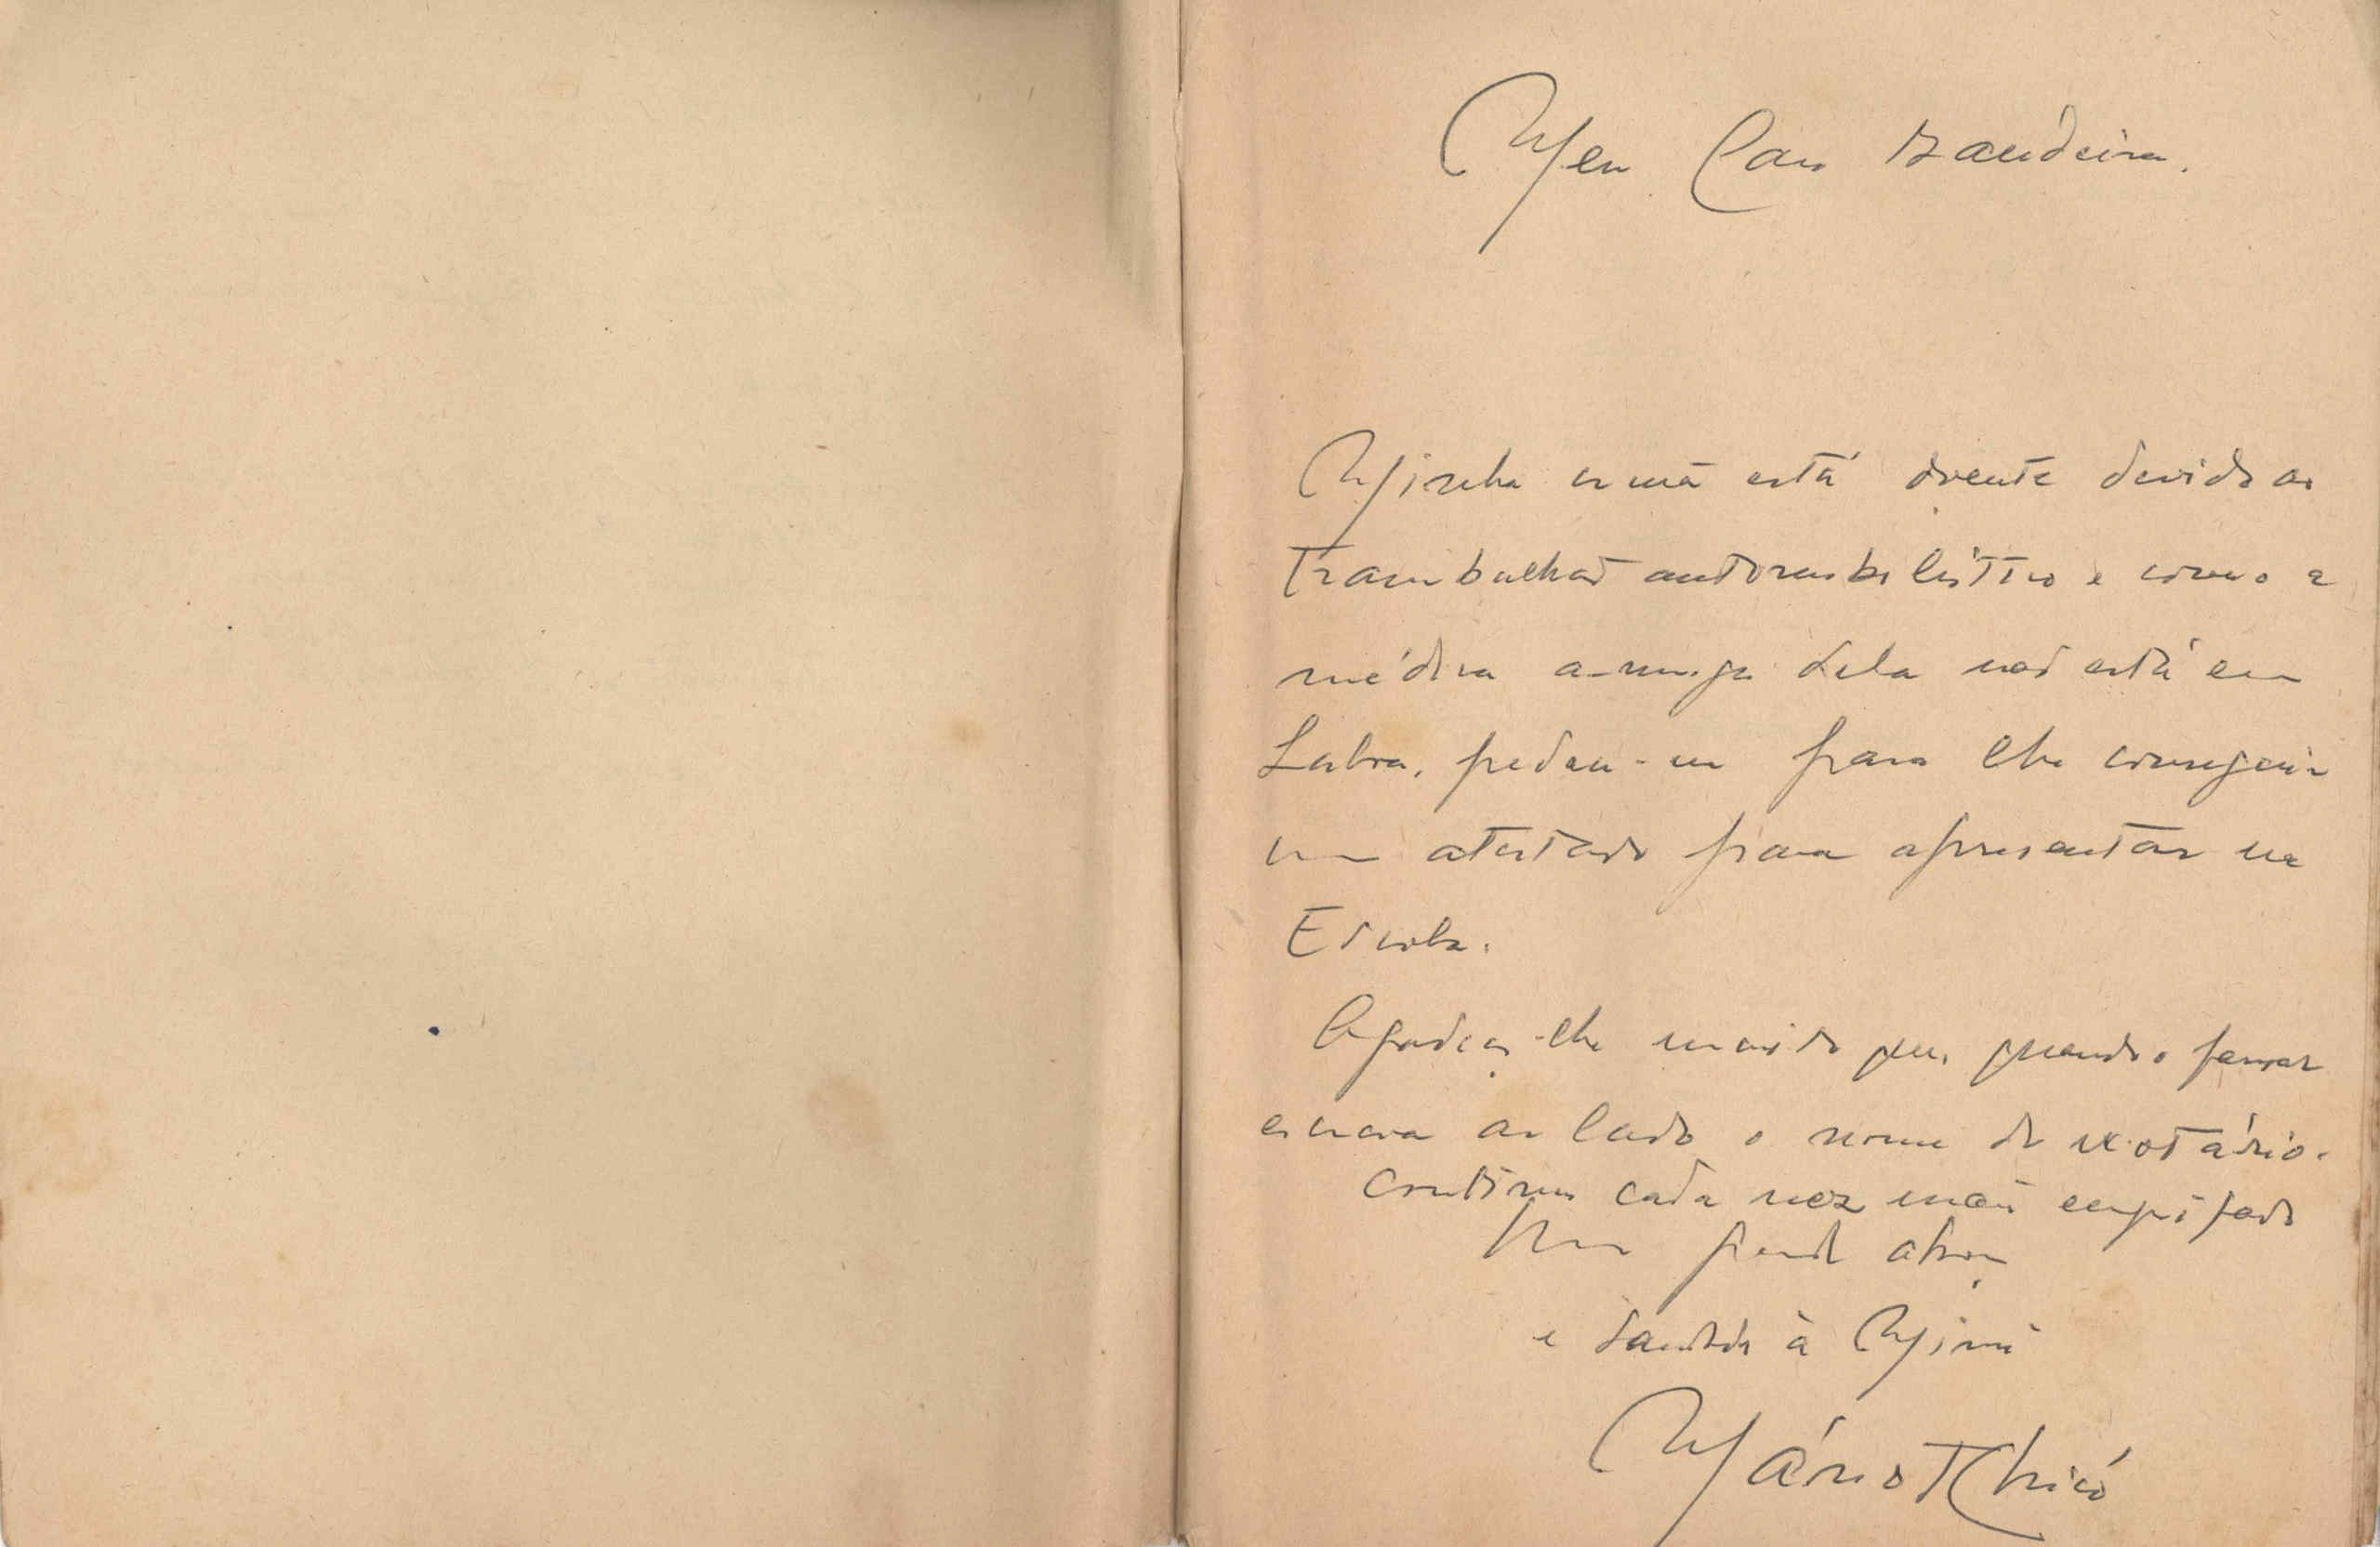 Meu Caro Bandeira.
Minha irmã está doente devido ao
trambulhão automobilístico e como a
médica amiga dela não está em
Lisboa, pedeu-me para lhe conseguir
um atestado para apresentar na
Escola.
Agradeço-lhe muito que, quando o passar
escreva ao lado o nome do notário.
Continuo cada vez mais engripado
Um grande abraço
e saudades à Mimi
Mário T Chicó